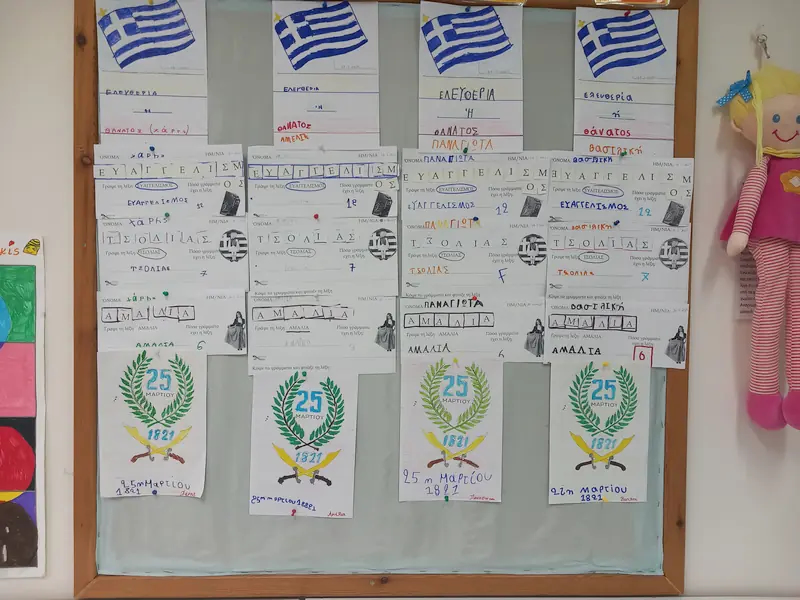 ΕΛΕΥΘΕΡΙΑ
Ή
ΘΑΝΑΤΟΣ (χάρης)
ΕΛΕΥΘΕΡΙΑ
Ή
ΘΑΝΑΤΟΣ
ΑΜΕΛΙΑ
ΕΛΕΥΘΕΡΙΑ
Ή
ΘΑΝΑΤΟΣ
ΠΑΝΑΓΙΩΤΑ
ελευθερία
ή
θάνατος
ΟΝΟΜΑ ΗΜ/ΝΙΑ
ΕΥΑΓΓΕΛΙΣΜ
ΟΣ
Γράφω τη λέξη ΕΥΑΓΓΕΛΙΣΜΟΣ Πόσα γράμματα έχει η λέξη;
ΕΥΑΓΓΕΛΙΣΜΟΣ 11
ΟΝΟΜΑ ΗΜ/ΝΙΑ
ΕΥΑΓΓΕΛΙΣΜ
ΟΣ
Γράφω τη λέξη ΕΥΑΓΓΕΛΙΣΜΟΣ Πόσα γράμματα έχει η λέξη;
ΟΝΟΜΑ ΠΑΝΑΓΙΩΤΑ ΗΜ/ΝΙΑ
ΕΥΑΓΓΕΛΙΣΜ
ΟΣ
Γράφω τη λέξη ΕΥΑΓΓΕΛΙΣΜΟΣ Πόσα γράμματα έχει η λέξη;
ΕΥΑΓΓΕΛΙΣΜΟΣ 12
ΟΝΟΜΑ ΗΜ/ΝΙΑ
ΕΥΑΓΓΕΛΙΣΜ
ΟΣ
Γράφω τη λέξη ΕΥΑΓΓΕΛΙΣΜΟΣ Πόσα γράμματα έχει η λέξη;
ΕΥΑΓΓΕΛΙΣΜΟΣ 12
ΤΣΟΛΙΑΣ
Γράφω τη λέξη ΤΣΟΛΙΑΣ Πόσα γράμματα έχει η λέξη;
ΤΣΟΛΙΑΣ 7
ΤΣΟΛΙΑΣ
Γράφω τη λέξη ΤΣΟΛΙΑΣ Πόσα γράμματα έχει η λέξη;
7
ΠΑΝΑΓΙΩΤΑ
ΤΣΟΛΙΑΣ
Γράφω τη λέξη ΤΣΟΛΙΑΣ Πόσα γράμματα έχει η λέξη;
ΤΣΟΛΙΑΣ
ΤΣΟΛΙΑΣ
Γράφω τη λέξη ΤΣΟΛΙΑΣ Πόσα γράμματα έχει η λέξη;
ΤΣΟΛΙΑΣ
ΑΜΑΛΙΑ
Γράφω τη λέξη ΑΜΑΛΙΑ Πόσα γράμματα έχει η λέξη;
ΑΜΑΛΙΑ 6
Κόψε τα γράμματα και φτιάξε τη λέξη
ΑΜΑΛΙΑ
Γράφω τη λέξη ΑΜΑΛΙΑ
ΟΝΟΜΑ ΠΑΝΑΓΙΩΤΑ ΗΜ/ΝΙΑ
ΑΜΑΛΙΑ
Γράφω τη λέξη ΑΜΑΛΙΑ Πόσα γράμματα έχει η λέξη;
ΑΜΑΛΙΑ 6
ΟΝΟΜΑ ΗΜ/ΝΙΑ
ΑΜΑΛΙΑ
Γράφω τη λέξη ΑΜΑΛΙΑ Πόσα γράμματα έχει η λέξη;
ΑΜΑΛΙΑ 6
25
ΜΑΡΤΙΟΥ
1821
25η Μαρτίου
1821
25
ΜΑΡΤΙΟΥ
1821
25η Μαρτίου 1821
25
ΜΑΡΤΙΟΥ
1821
25 η Μαρτίου
1821
25
ΜΑΡΤΙΟΥ
1821
μαρτιου
1821